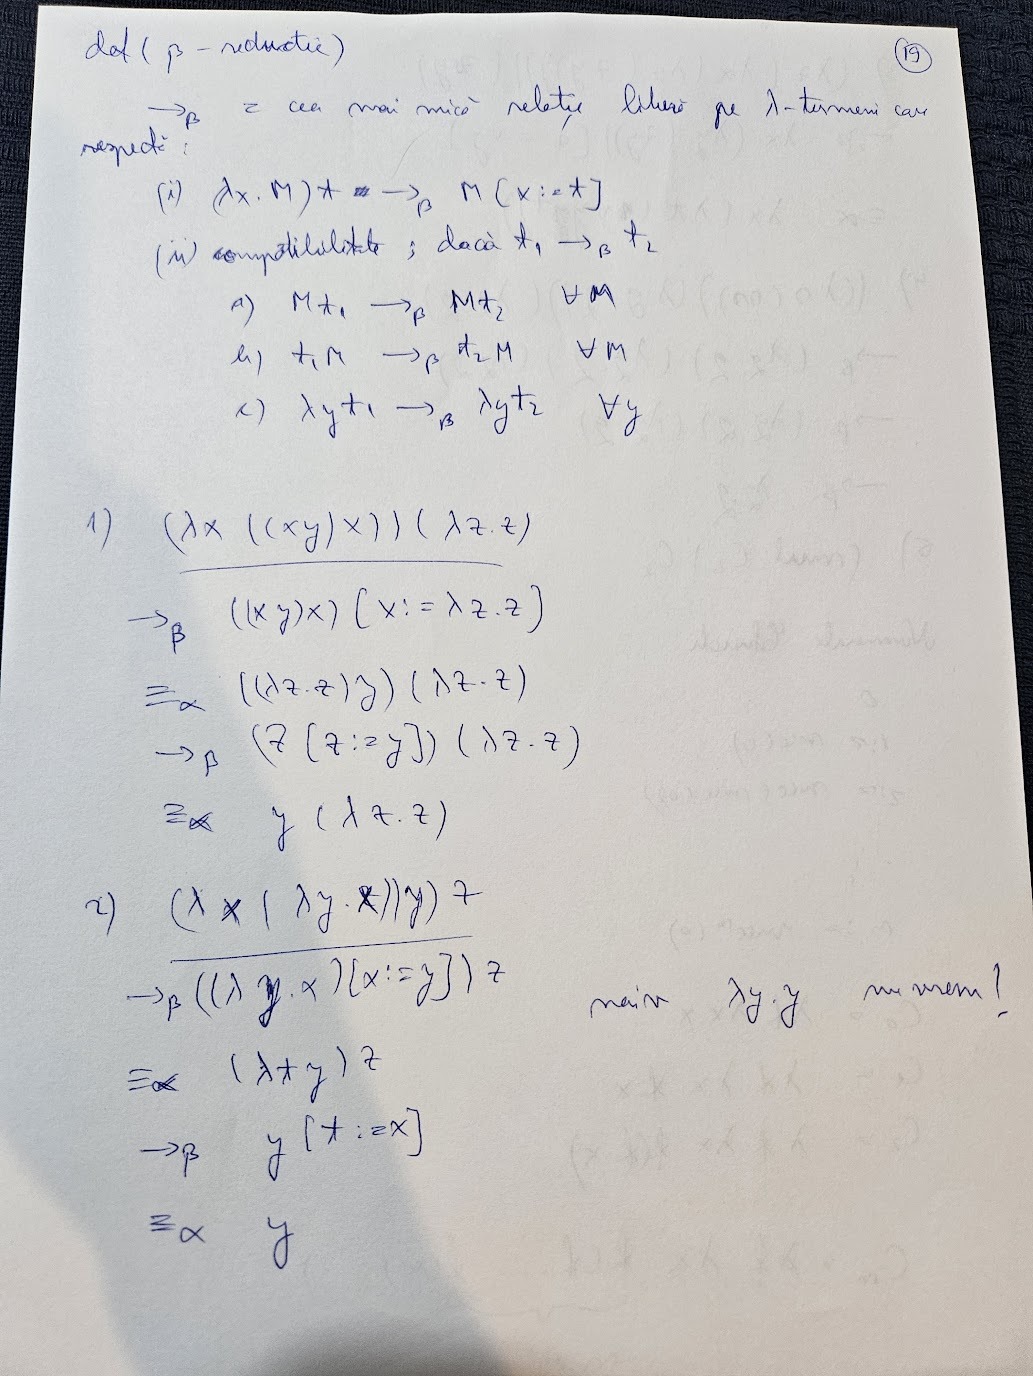 def ( β - reducție )
19
→β = cea mai mică relație binară pe λ-termeni care
respectă :
(i) (λx. M) t →β M [x := t]
(ii) compatibilitate ; dacă t₁ →β t₂
a) M t₁ →β M t₂ ∀ M
b) t₁ M →β t₂ M ∀ M
c) λy t₁ →β λy t₂ ∀ y
1) (λx ((xy) x)) ( λz. z)
→β ((xy)x) [ x := λz. z ]
≡α ((λz. z) y) ( λz. z)
→β (z [z := y]) ( λz. z)
≡α y ( λz. z)
2) (λx ( λy. x)) y) z
→β ((λy. x) [x := y]) z naiv λy. y nu vrem !
≡α (λt y) z
→β y [t := x]
≡α y